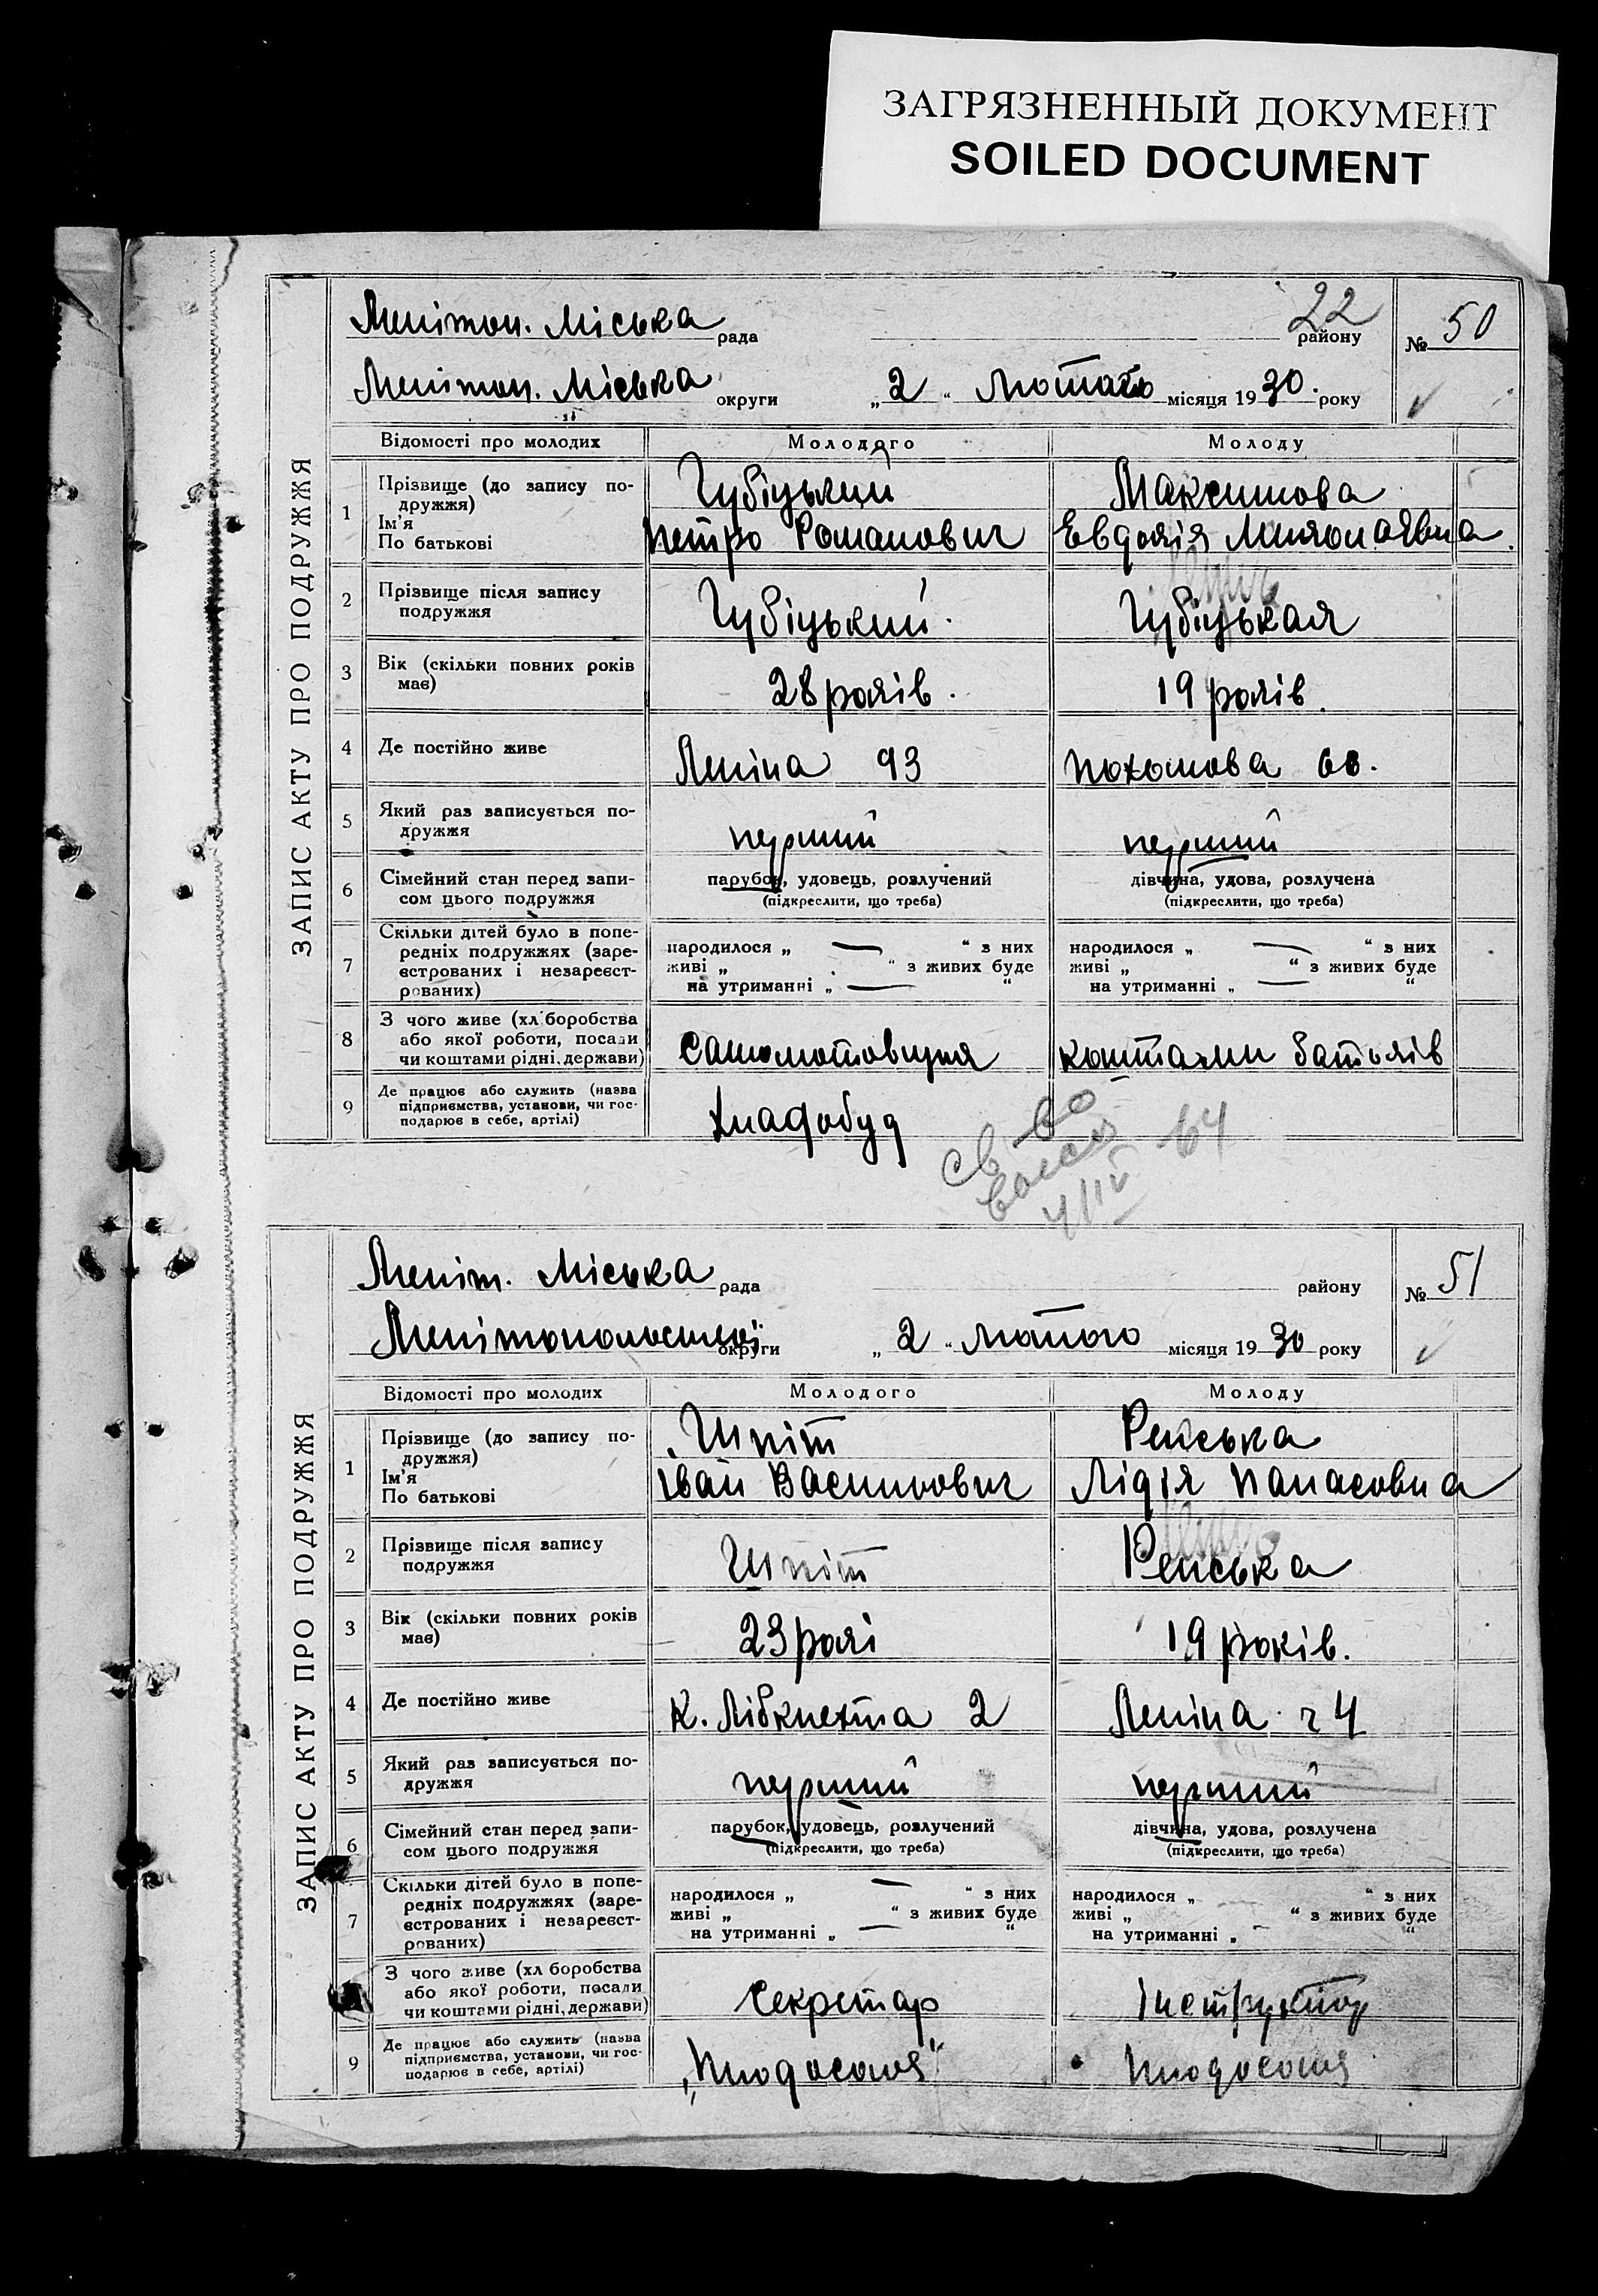 ЗАГРЯЗНЕННЫЙ ДОКУМЕНТ
SOILED DOCUMENT
ЗАПИС АКТУ ПРО ПОДРУЖЖЯ
22
Мелітоп. Міська рада району № 50
Мелітоп. Міська округи „2“ лютого місяця 1930. року
Відомості про молодих Молодого Молоду
1 Прізвище (до запису по-
дружжя)
Ім'я
По батькові
Губіцький Максимова
Петро Романович Евдокія
2 Прізвище після запису
подружжя
Губіцький Губіцькая
3 Вік (скільки повних років
має)
28 років. 19 років.
4 Де постійно живе Леніна 93
5 Який раз записується по-
дружжя
перший перший
6 Сімейний стан перед запи-
сом цього подружжя
парубок, удовець, розлучений дівчина, удова, розлучена
(підкреслити, що треба) (підкреслити, що треба)
7 Скільки дітей було в попе-
редніх подружжях (заре-
єстрованих і незареєст-
рованих)
народилося „ — “ з них народилося „ — “ з них
живі „ “ з живих буде живі „ “ з живих буде
на утриманні „ — “ на утриманні „ — “
8 З чого живе (хл боробства
або якої роботи, посади
чи коштами рідні, держави)
коштами батьків
9 Де працює або служить (назва
підприємства, установи, чи гос-
подарює в себе, артілі)
св во
64
ЗАПИС АКТУ ПРО ПОДРУЖЖЯ
Меліт. Міська рада району № 51
Мелітопольської округи „2“ лютого місяця 1930 року
Відомості про молодих Молодого Молоду
1 Прізвище (до запису по-
дружжя)
Ім'я
По батькові
Шпіт Ренська
Іван Васильович Лідія Панасовна
2 Прізвище після запису
подружжя
Шпіт Ренська
3 Вік (скільки повних років
має)
23 рокі 19 років.
4 Де постійно живе К. Лібкнехта 2 Леніна 24
5 Який раз записується по-
дружжя
перший перший
6 Сімейний стан перед запи-
сом цього подружжя
парубок, удовець, розлучений дівчина, удова, розлучена
(підкреслити, що треба) (підкреслити, що треба)
7 Скільки дітей було в попе-
редніх подружжях (заре-
єстрованих і незареєст-
рованих)
народилося „ — “ з них народилося „ “ з них
живі „ “ з живих буде живі „ “ з живих буде
на утриманні „ — “ на утриманні „ — “
З чого живе (хл боробства
або якої роботи, посади
чи коштами рідні, держави)
Секретар Інструктор
9 Де працює або служить (назва
підприємства, установи, чи гос-
подарює в себе, артілі)
„Плодосоюз“ Плодосоюз